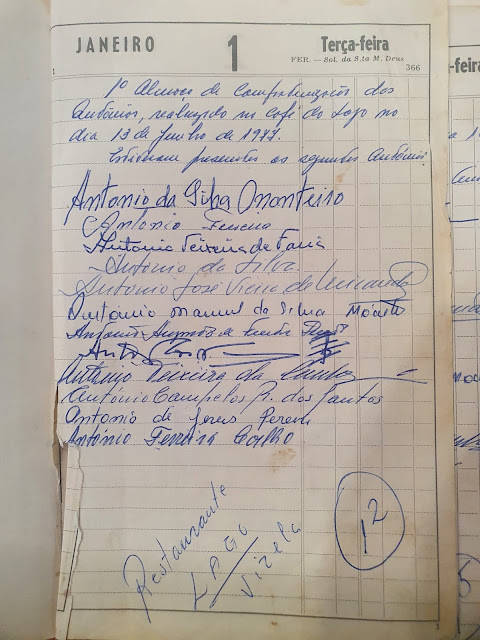 JANEIRO 1 Terça-feira
FER. — Sol. da S.ta M. Deus
366
-feira
1º Almoço de Confraternização dos
Antónios, realizado no Café do Lago no
dia 13 de Junho de 1977.
Estiveram presentes os seguintes Antónios
Antonio da Silva Monteiro
António Ferreira
Antonio Teixeira de Faria
António da Silva
Antonio José Vieira de Miranda
António Manuel da Silva
António Augusto
António Teixeira da Cunha
António Campelos R. dos Santos
Antonio de Jesus Pereira
António Ferreira Coelho
Restaurante
LAGO
Vizela
12